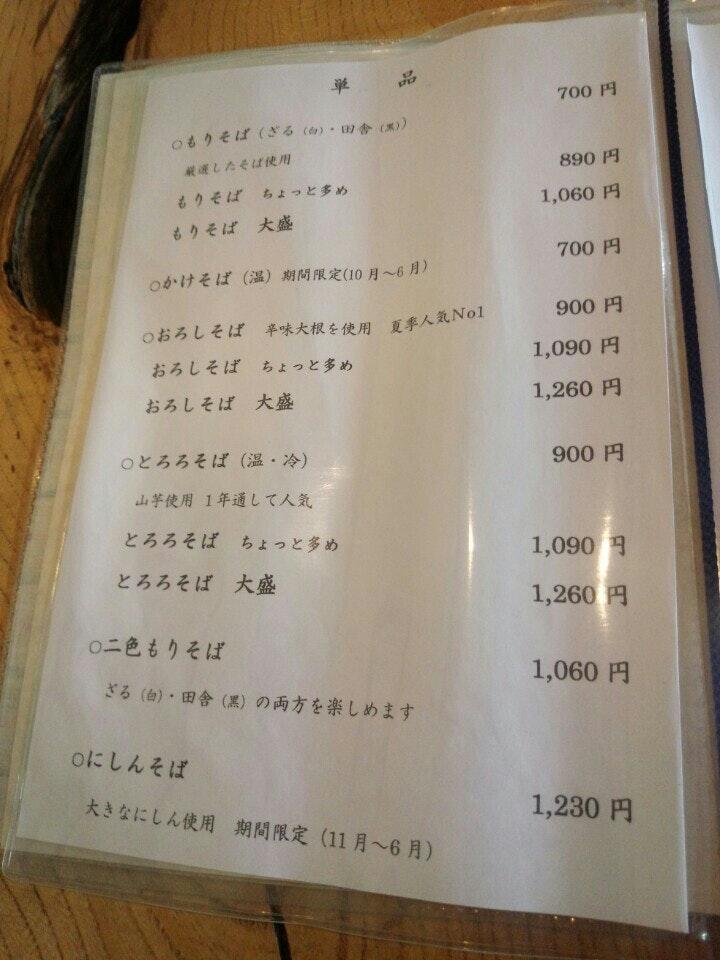 単品
○もりそば（ざる（白）・田舎（黒）） 700円
厳選したそば使用
もりそば ちょっと多め 890円
もりそば 大盛 1,060円
○かけそば（温）期間限定(10月～6月) 700円
○おろしそば 辛味大根を使用 夏季人気No1 900円
おろしそば ちょっと多め 1,090円
おろしそば 大盛 1,260円
○とろろそば（温・冷） 900円
山芋使用 1年通して人気
とろろそば ちょっと多め 1,090円
とろろそば 大盛 1,260円
○二色もりそば 1,060円
ざる（白）・田舎（黒）の両方を楽しめます
○にしんそば 1,230円
大きなにしん使用 期間限定（11月～6月）